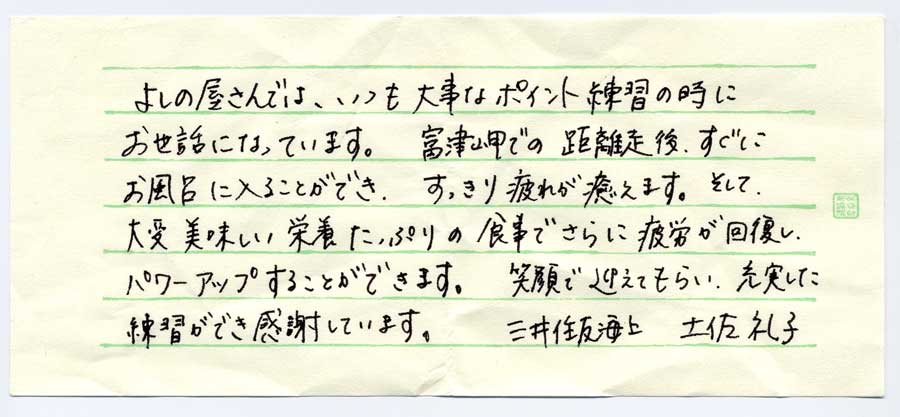 よしの屋さんでは、いつも 大事なポイント練習の時に
お世話になっています。 富津岬での 距離走後、すぐに
お風呂に入ることができ、 すっきり疲れが癒えます。そして、
大変 美味しい 栄養たっぷりの 食事でさらに 疲労が回復し、
パワーアップすることができます。 笑顔で迎えてもらい、充実した
練習ができ感謝しています。 三井住友海上 土佐礼子